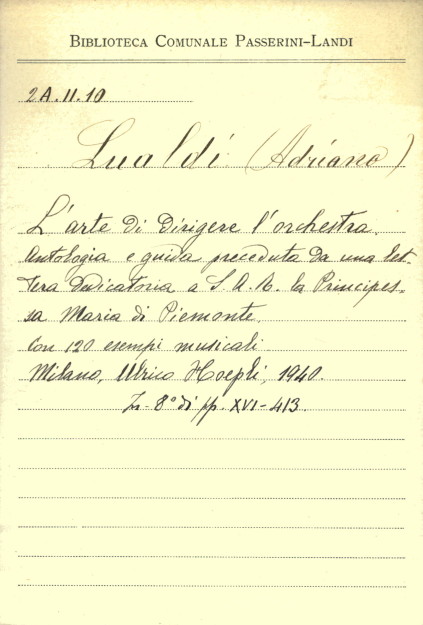 BIBLIOTECA COMUNALE PASSERINI-LANDI
2A.II.10
Lualdi (Adriano)
L'arte di dirigere l'orchestra.
Antologia e guida preceduta da una let-
tera dedicatoria a S. A. R. la Principes-
sa Maria di Piemonte.
Con 120 esempi musicali
Milano, Ulrico Hoepli, 1940.
In-8° di pp. XVI-413.